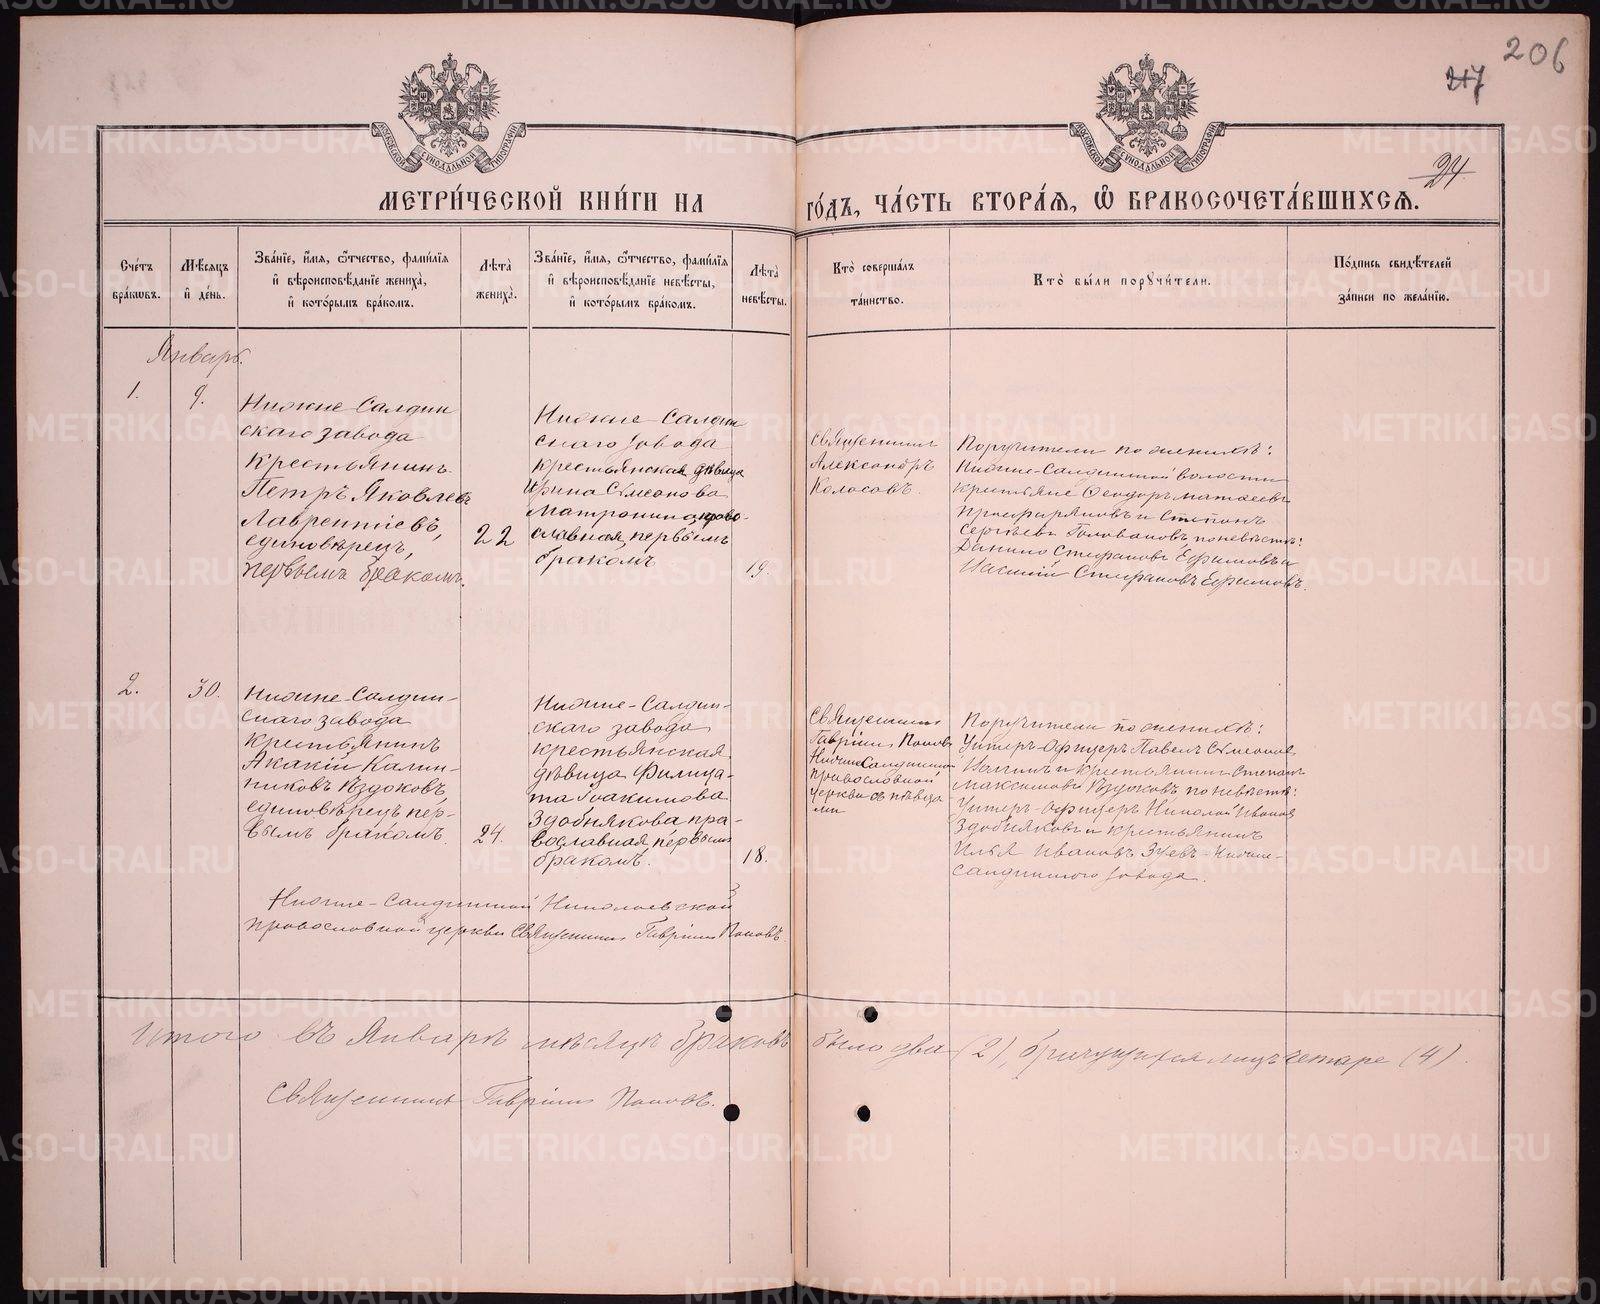 206
217
24
МОСКОВСКОЙ СѴНОДАЛЬНОЙ ТИПОГРАФІИ
МОСКОВСКОЙ СѴНОДАЛЬНОЙ ТИПОГРАФІИ
МЕТРИ́ЧЕСКОЙ КНИ́ГИ НА ГО́ДЪ, ЧА́СТЬ ВТОРА́Я, Ѽ БРАКОСОЧЕТА́ВШИХСЯ.
Сче́тъ бра́кѡвъ.
Мѣ́сяцъ и҆ де́нь.
Зва́нїе, и҆́мя, ѻ҆́тчество, фами́лїя и҆ вѣроисповѣ́данїе жениха̀, и҆ кото́рымъ бра́комъ.
Лѣ́та жениха̀.
Зва́нїе, и҆́мя, ѻ҆́тчество, фами́лїя и҆ вѣроисповѣ́данїе невѣ́сты, и҆ кото́рымъ бра́комъ.
Лѣ́та невѣ́сты.
Кто̀ соверша́лъ та́инство.
Кто̀ бы́ли порꙋчи́тели.
По́дпись свидѣ́телей за́писи по жела́нїю.
Январь.
1.
9.
Нижне-Салдин
скаго завода
Крестьянинъ
Петръ Яковлевъ
Лаврентіевъ,
единовѣрецъ,
первымъ бракомъ.
22
Нижне-Салдин
скаго завода
крестьянская дѣвица
Ирина Симеонова
Матронина, право-
славная, первымъ
бракомъ
19.
Священникъ
Александръ
Колосовъ.
Поручители по женихѣ:
Нижне-Салдинской волости
крестьяне Ѳеодоръ Матвеевъ
и Степанъ
Сергѣевъ Головановъ, по невѣстѣ:
Данило Стефановъ Ефимовъ и
Василій Стефановъ Ефимовъ.
2.
30.
Нижне-Салдин-
скаго завода
Крестьянинъ
Акакій Калин-
никовъ Ѣздоковъ,
единовѣрецъ, пер-
вымъ бракомъ.
24.
Нижне-Салдин-
скаго завода
крестьянская
дѣвица Филица-
та Іоакимова
Здобнякова пра-
вославная первымъ
бракомъ.
18.
Священникъ
Гавріилъ Поповъ
Нижнесалдинской
православной
церкви
Поручители по женихѣ:
Унтеръ-Офицеръ Павелъ Симеоновъ
и крестьянинъ Степанъ
Максимовъ Ѣздоковъ по невѣстѣ:
Унтеръ-Офицеръ Николай Ивановъ
Здобняковъ и крестьянинъ
Илья Ивановъ Зуевъ Нижне-
салдинскаго завода.
Нижне-Салдинской Николаевской
православной церкви Священникъ Гавріилъ Поповъ
Итого въ Январѣ мѣсяцѣ браковъ было два (2), лицъ четыре (4).
Священникъ Гавріилъ Поповъ.
METRIKI.GASO-URAL.RU